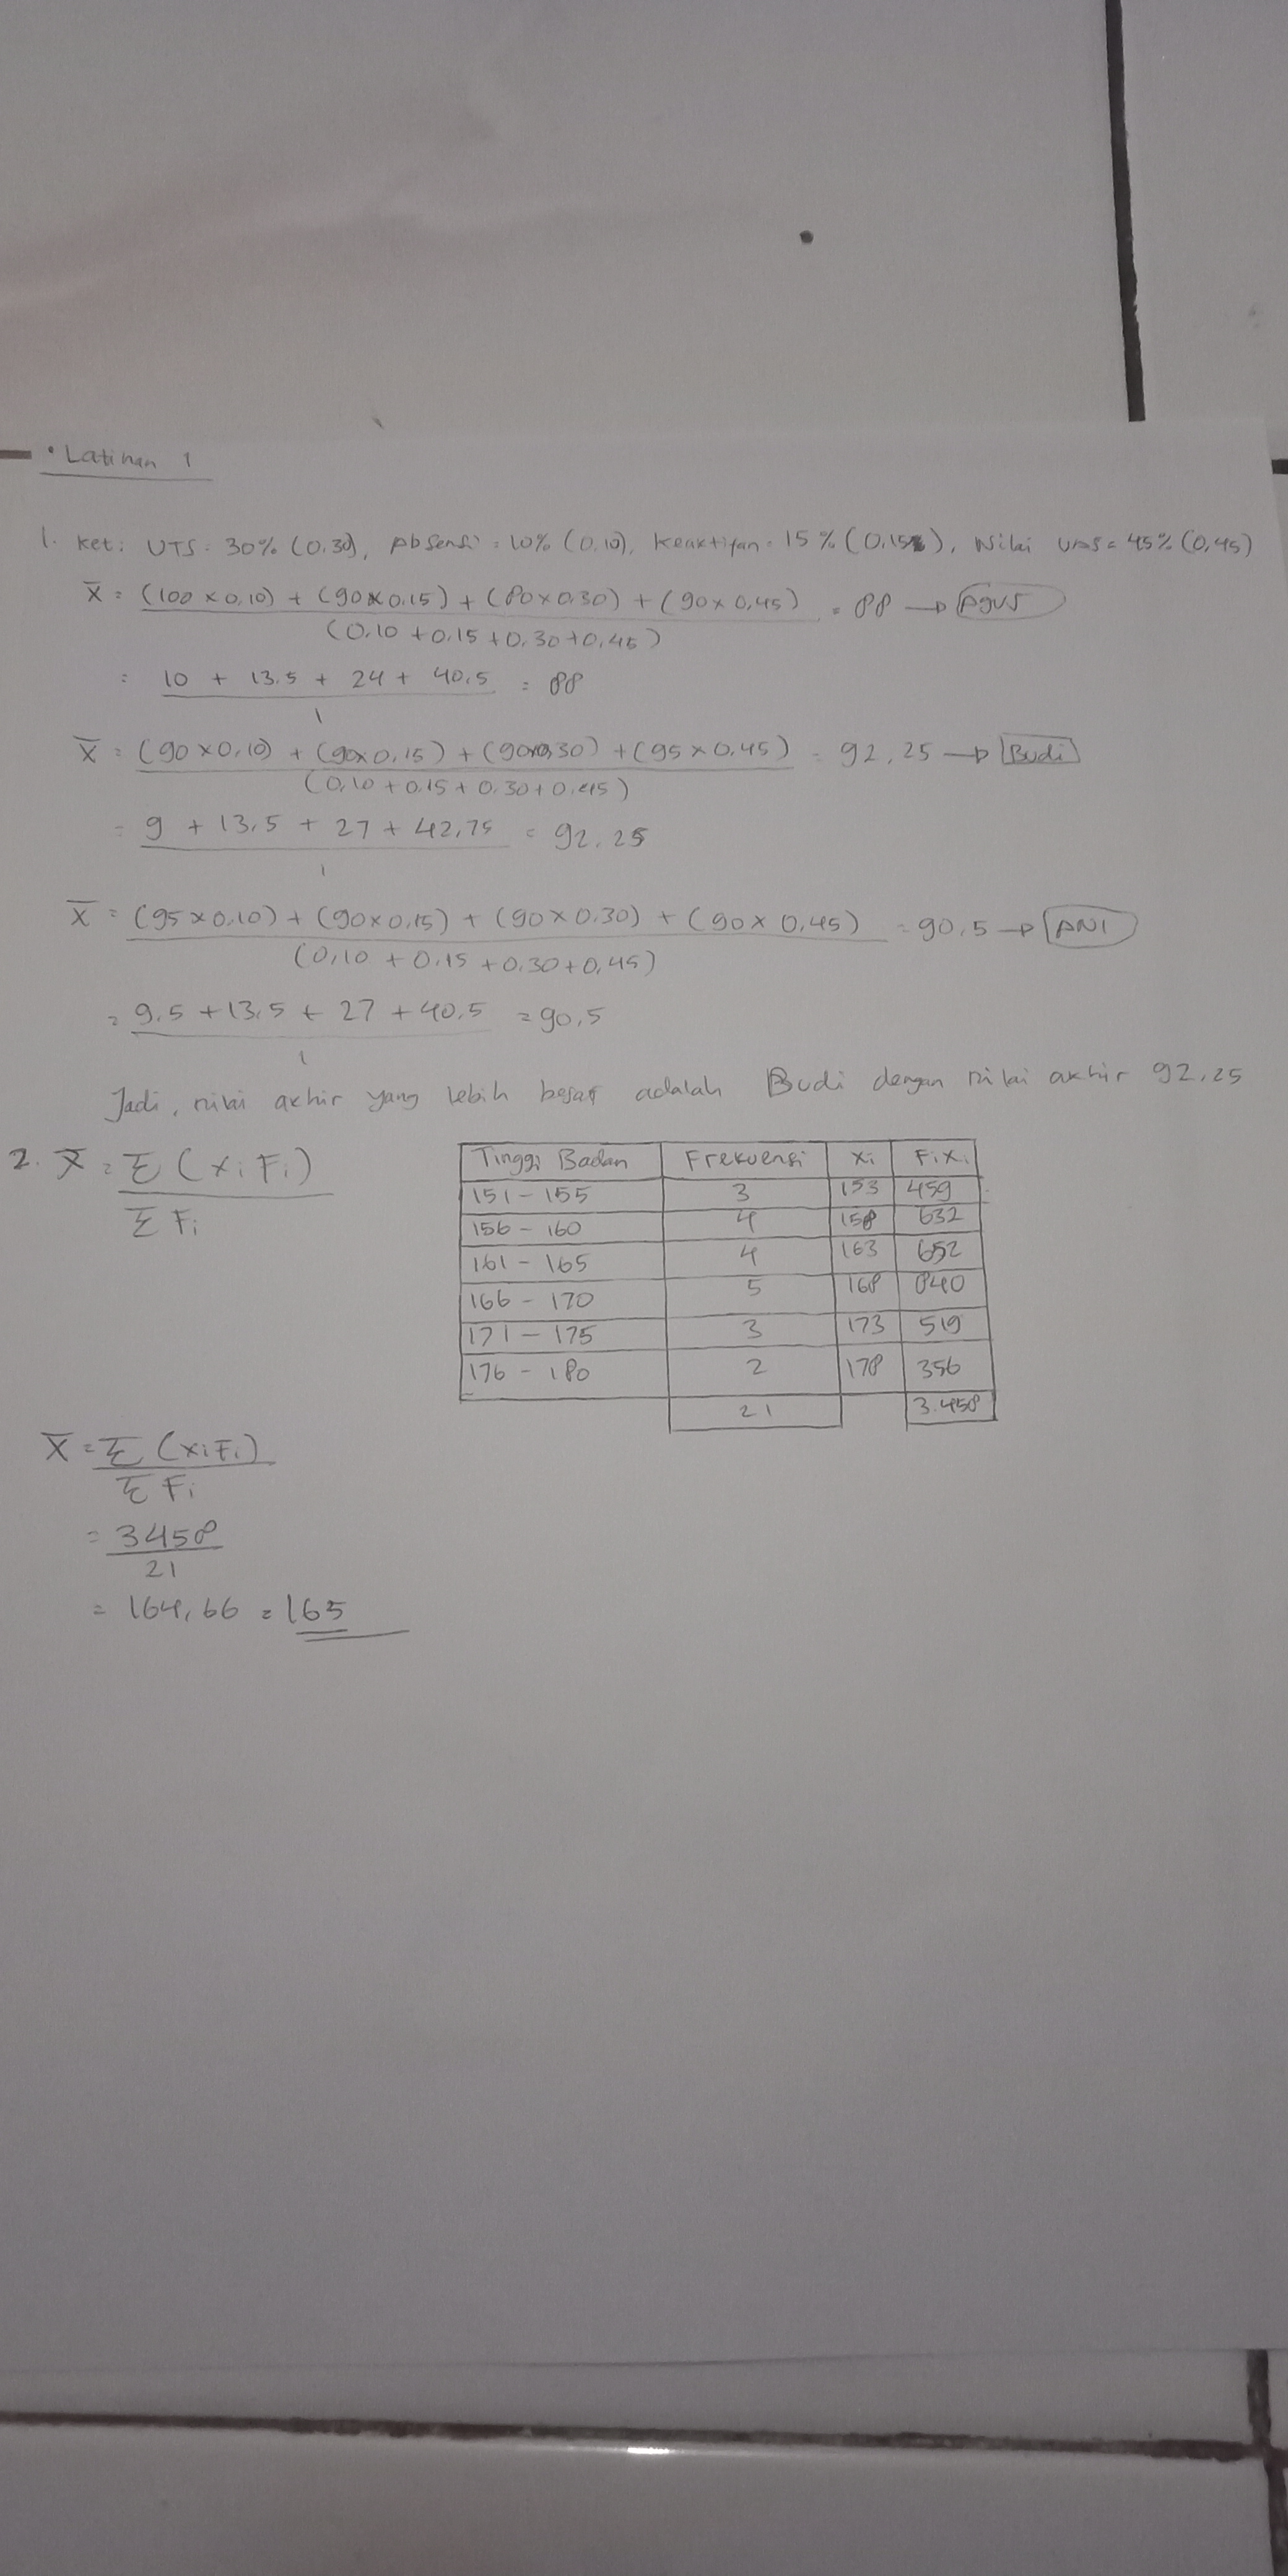 • Latihan 1
1. Ket: UTS: 30% (0.30), Absensi = 10% (0.10), Keaktifan = 15% (0.15), Nilai UAS = 45% (0,45)
X̄ = (100 x 0,10) + (90 x 0.15) + (80 x 0.30) + (90 x 0,45) = 88 → Agus
(0.10 + 0.15 + 0.30 + 0.45)
= 10 + 13.5 + 24 + 40.5 = 88
1
X̄ = (90 x 0,10) + (90 x 0,15) + (90x0,30) + (95 x 0.45) = 92,25 → Budi
(0,10 + 0.15 + 0.30 + 0.45)
= 9 + 13,5 + 27 + 42,75 = 92.25
1
X̄ = (95 x 0.10) + (90 x 0.15) + (90 x 0.30) + (90 x 0,45) = 90,5 → ANI
(0,10 + 0.15 + 0.30 + 0.45)
= 9.5 + 13.5 + 27 + 40.5 = 90,5
1
Jadi, nilai akhir yang lebih besar adalah Budi dengan nilai akhir 92,25
2. X̄ = Σ (Xi Fi)
Σ Fi
Tinggi Badan Frekuensi Xi Fi Xi
151 - 155 3 153 459
156 - 160 4 158 632
161 - 165 4 163 652
166 - 170 5 168 840
171 - 175 3 173 519
176 - 180 2 178 356
21 3.458
X̄ = Σ (Xi Fi)
Σ Fi
= 3458
21
= 164,66 = 165